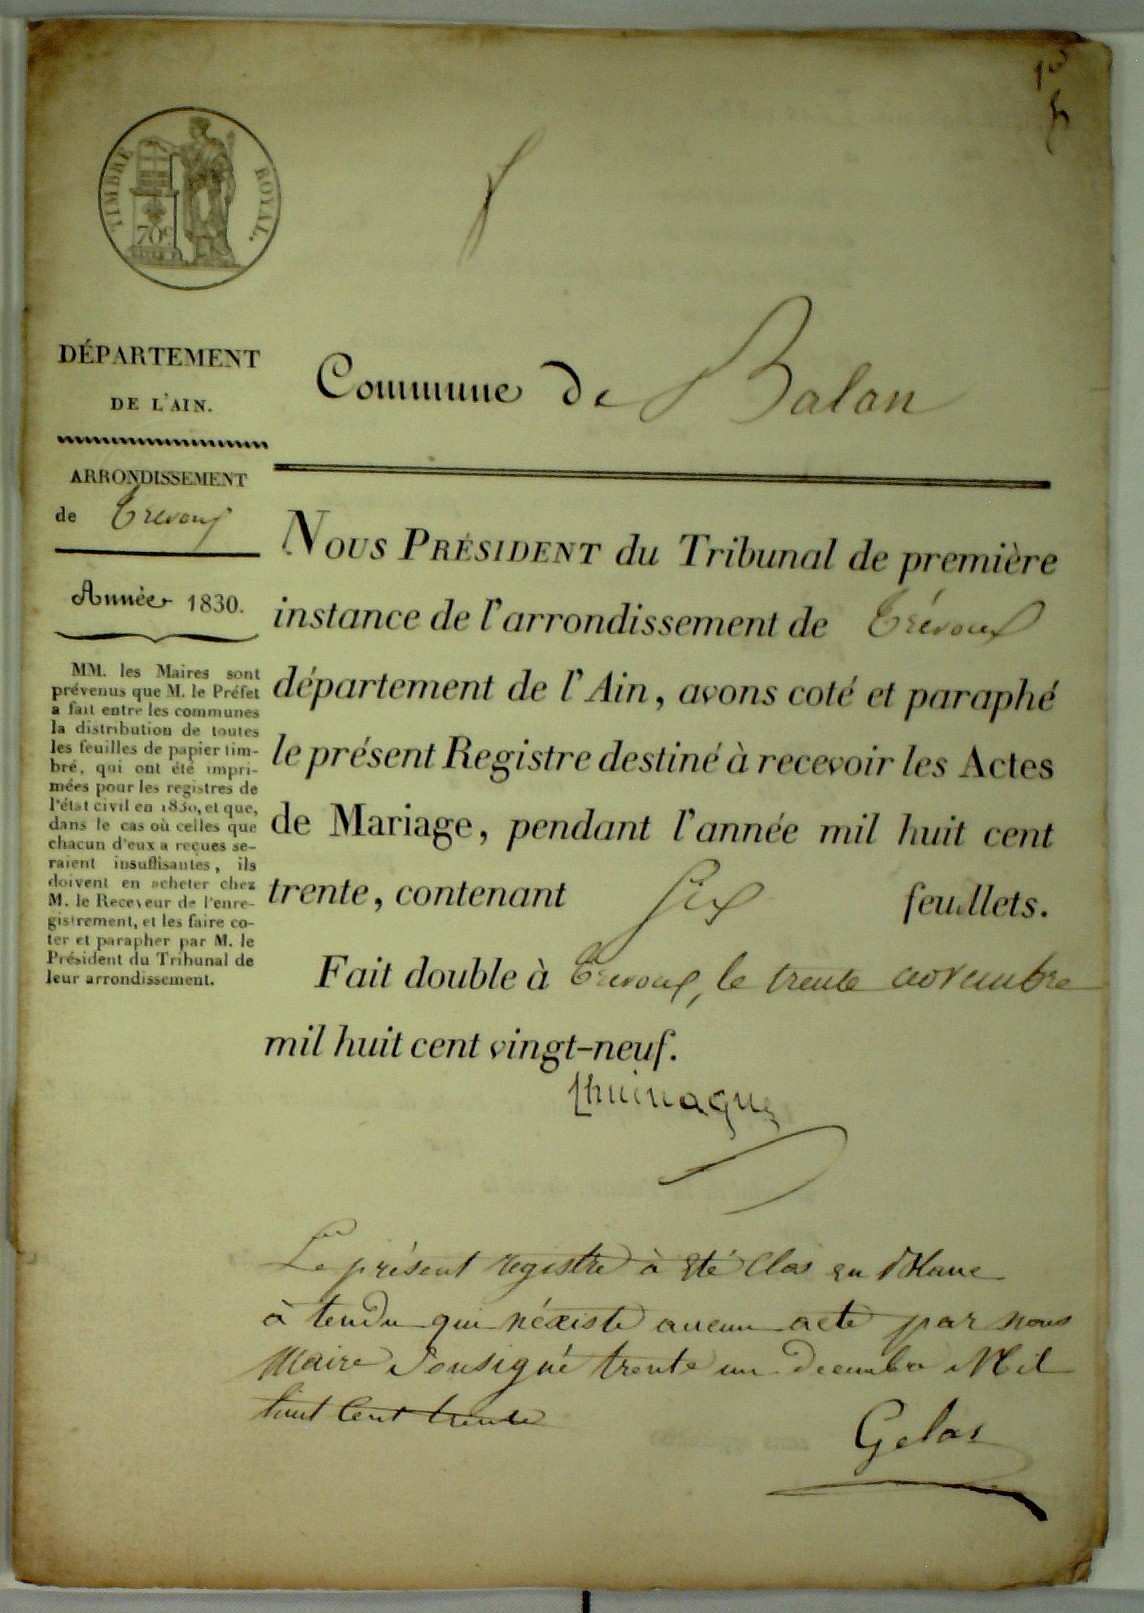 TIMBRE ROYAL.
70c
DÉPARTEMENT
DE L'AIN.
ARRONDISSEMENT
de Trevoux
Année 1830.
MM. les Maires sont
prévenus que M. le Préfet
a fait entre les communes
la distribution de toutes
les feuilles de papier tim-
bré, qui ont été impri-
mées pour les registres de
l'état civil en 1830, et que,
dans le cas où celles que
chacun d'eux a reçues se-
raient insuffisantes, ils
doivent en acheter chez
M. le Receveur de l'enre-
gistrement, et les faire co-
ter et parapher par M. le
Président du Tribunal de
leur arrondissement.
Commune de Balan
NOUS PRÉSIDENT du Tribunal de première
instance de l'arrondissement de Trévoux
département de l'Ain, avons coté et paraphé
le présent Registre destiné à recevoir les Actes
de Mariage, pendant l'année mil huit cent
trente, contenant Six feuillets.
Fait double à Trevoux, le trente novembre
mil huit cent vingt-neuf.
Le présent registre à été Clos en Blanc
à tendu qui néxiste aucun acte par nous
Maire Sousigné trente un Decembre Mil
huit Cent trente
Gelas